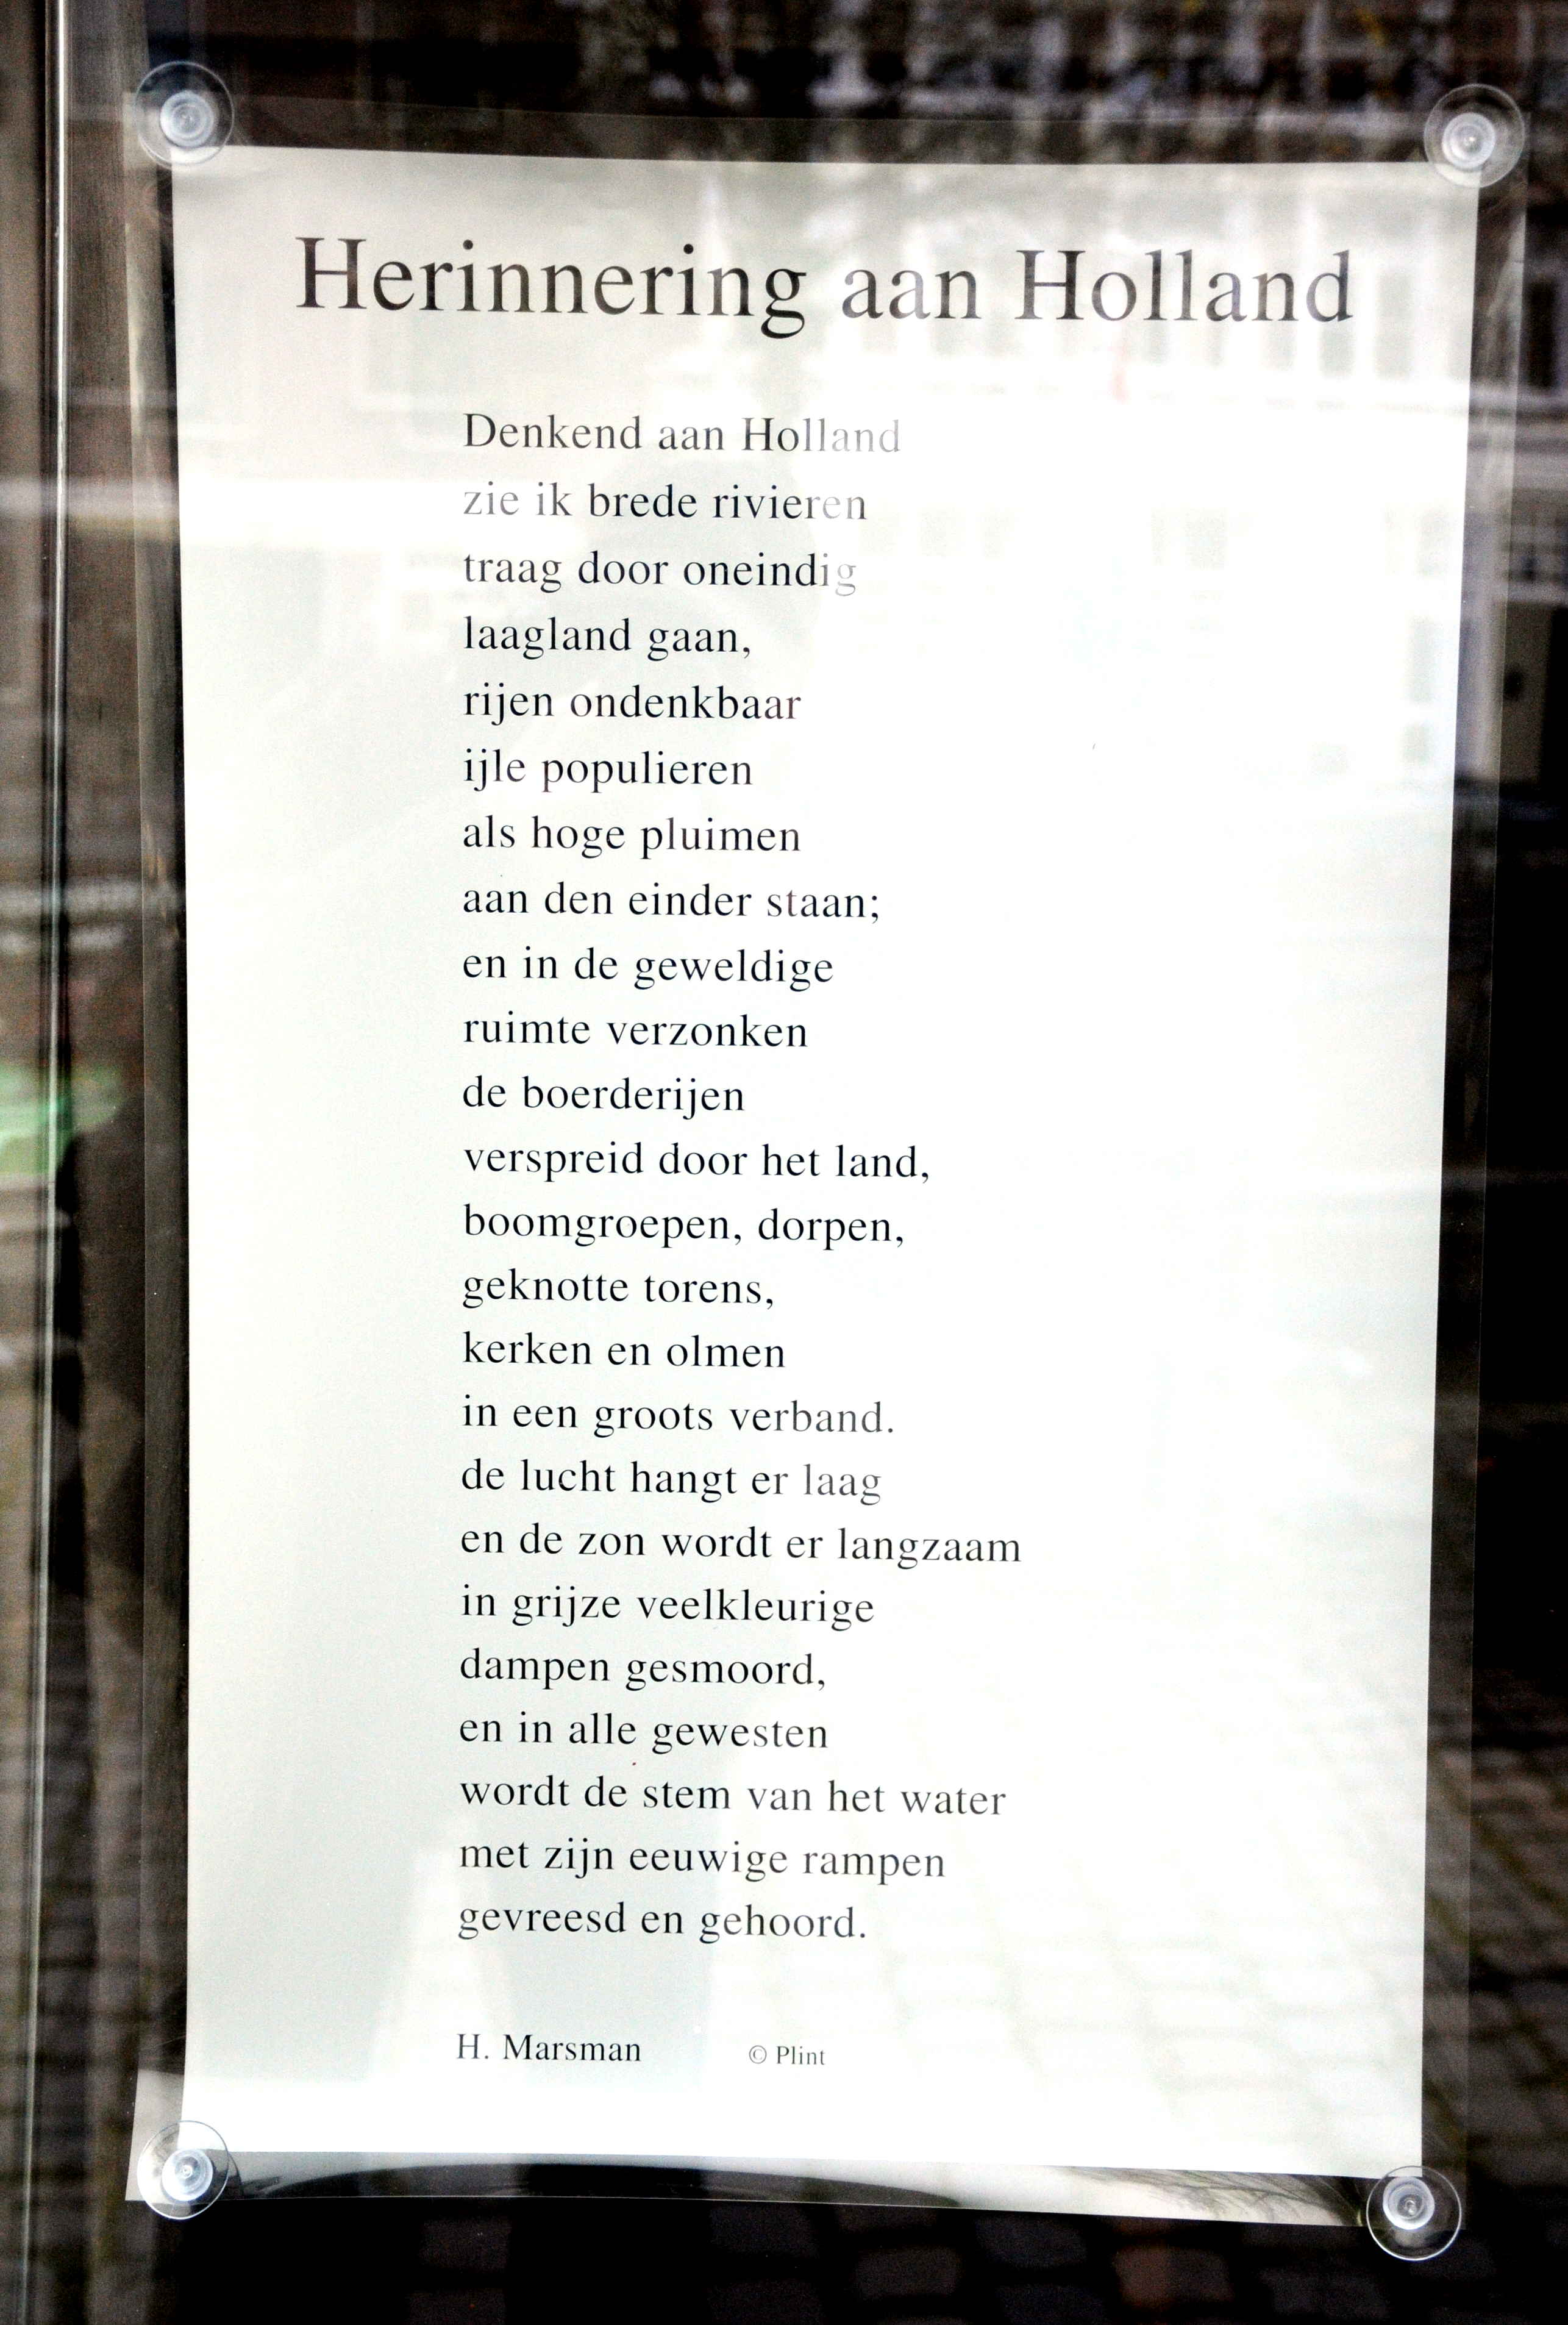 Herinnering aan Holland
Denkend aan Holland
zie ik brede rivieren
traag door oneindig
laagland gaan,
rijen ondenkbaar
ijle populieren
als hoge pluimen
aan den einder staan;
en in de geweldige
ruimte verzonken
de boerderijen
verspreid door het land,
boomgroepen, dorpen,
geknotte torens,
kerken en olmen
in een groots verband.
de lucht hangt er laag
en de zon wordt er langzaam
in grijze veelkleurige
dampen gesmoord,
en in alle gewesten
wordt de stem van het water
met zijn eeuwige rampen
gevreesd en gehoord.
H. Marsman © Plint